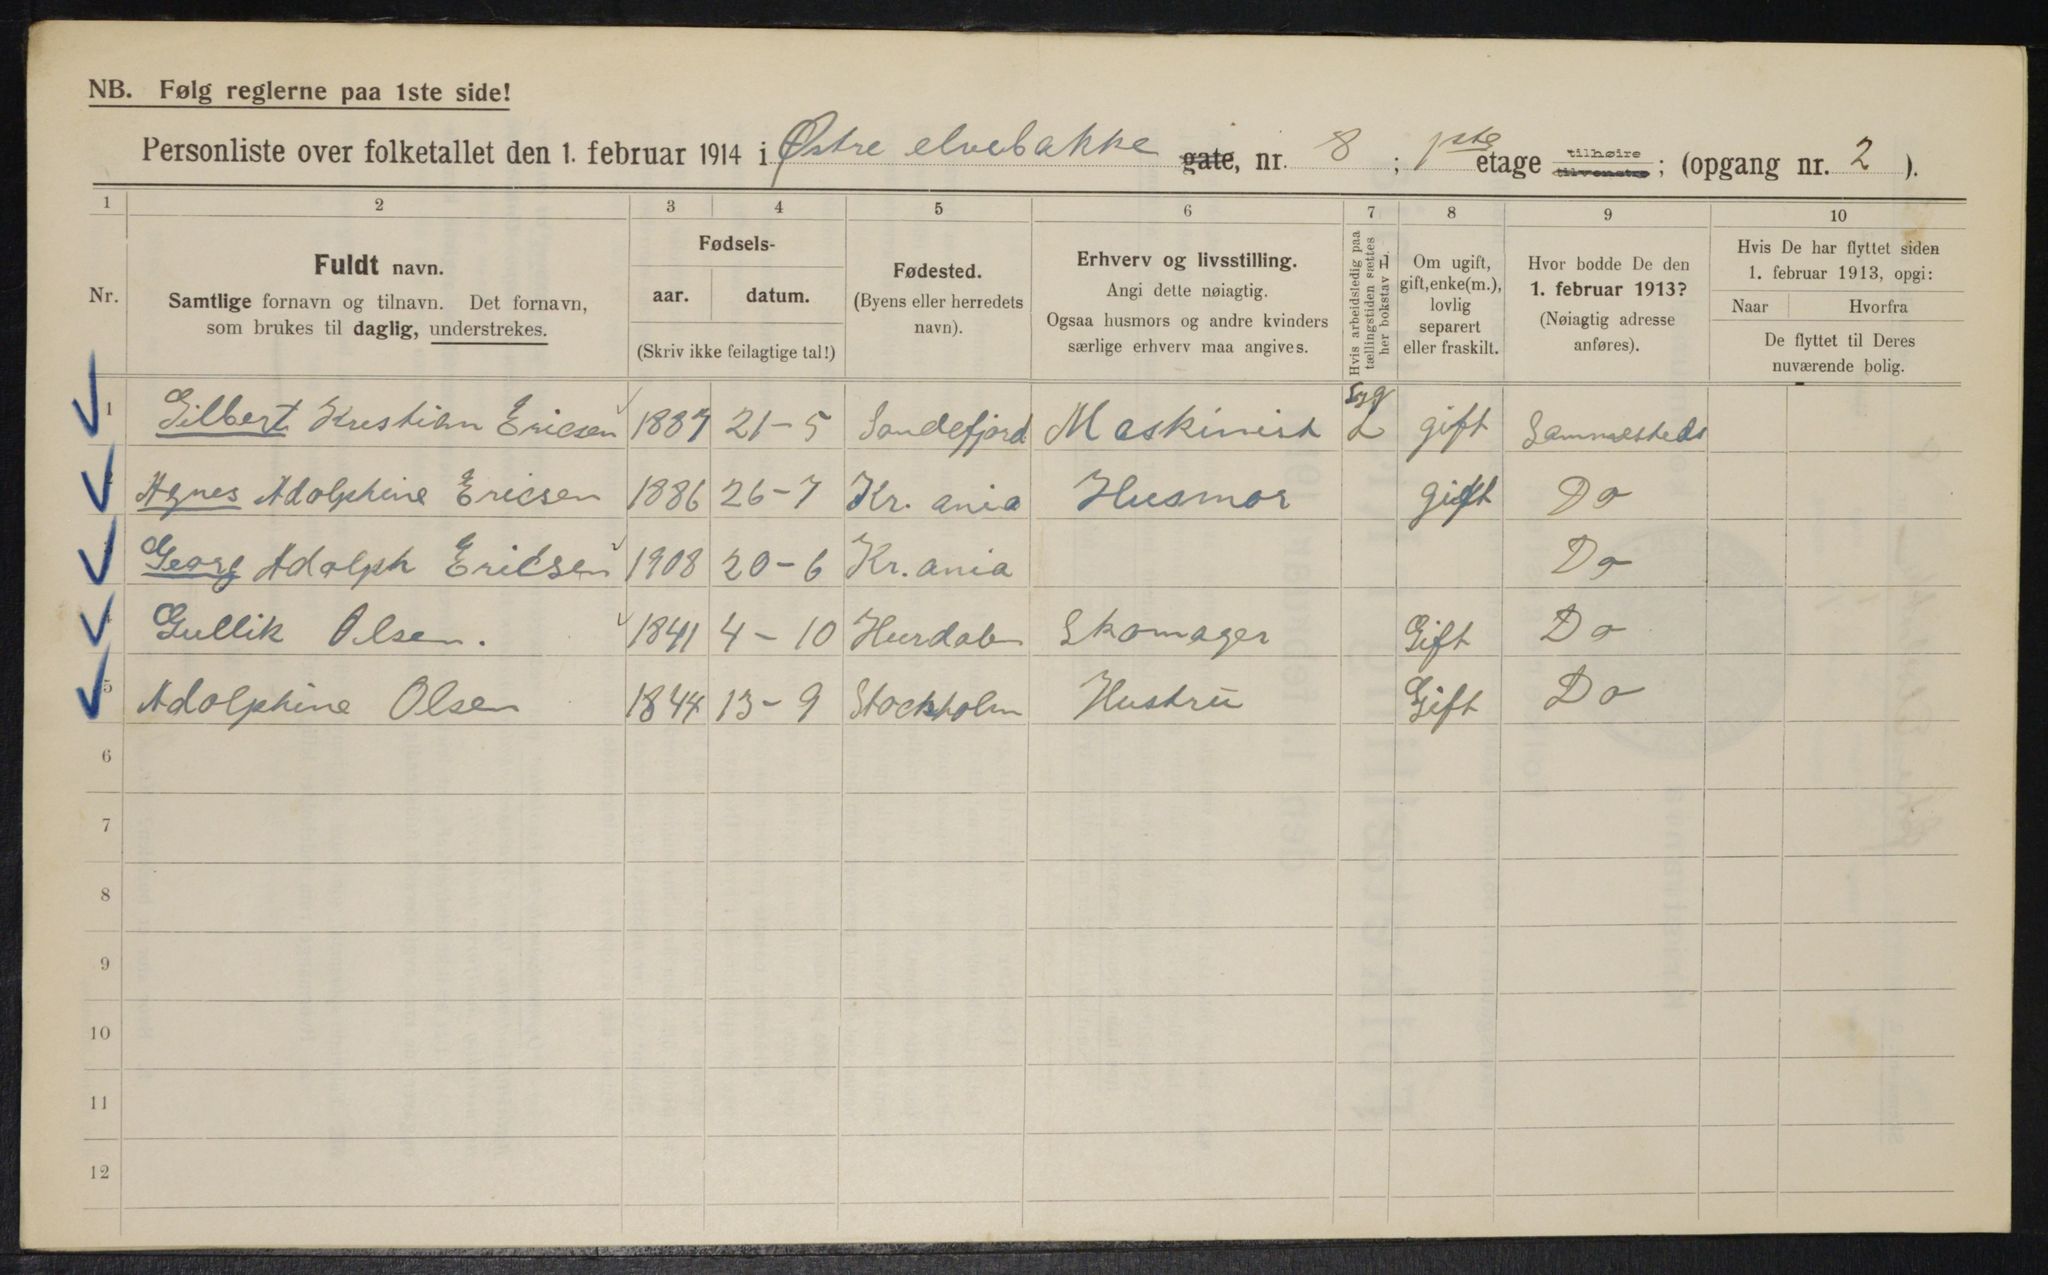 NB. Følg reglerne paa 1ste side!
Personliste over folketallet den 1. februar 1914 i Østre elvebakke gate, nr. 8 ; 1ste etage tilhøire tilvenstre; (opgang nr. 2 ).
1 2 3 4 5 6 7 8 9 10
Nr.
Fuldt navn.
Samtlige fornavn og tilnavn. Det fornavn,
som brukes til daglig, understrekes.
Fødsels-
aar. datum.
(Skriv ikke feilagtige tal!)
Fødested.
(Byens eller herredets
navn).
Erhverv og livsstilling.
Angi dette nøiagtig.
Ogsaa husmors og andre kvinders
særlige erhverv maa angives.
Hvis arbeidsledig paa
tællingstiden sættes
her bokstav L.
Om ugift,
gift, enke(m.),
lovlig
separert
eller fraskilt.
Hvor bodde De den
1. februar 1913?
(Nøiagtig adresse
anføres).
Hvis De har flyttet siden
1. februar 1913, opgi:
Naar Hvorfra
De flyttet til Deres
nuværende bolig.
1 Gilbert Kristian Ericsen 1887 21-5 Sandefjord Maskinist Syg L gift Sammesteds
2 Agnes Adolphine Ericsen 1886 26-7 Kr. ania Husmor gift Do
3 Georg Adolph Ericsen 1908 20-6 Kr. ania Do
4 Gullik Olsen. 1841 4-10 Hurdalen Skomager Gift Do
5 Adolphine Olsen 1844 13-9 Stockholm Hustru Gift Do
6
7
8
9
10
11
12